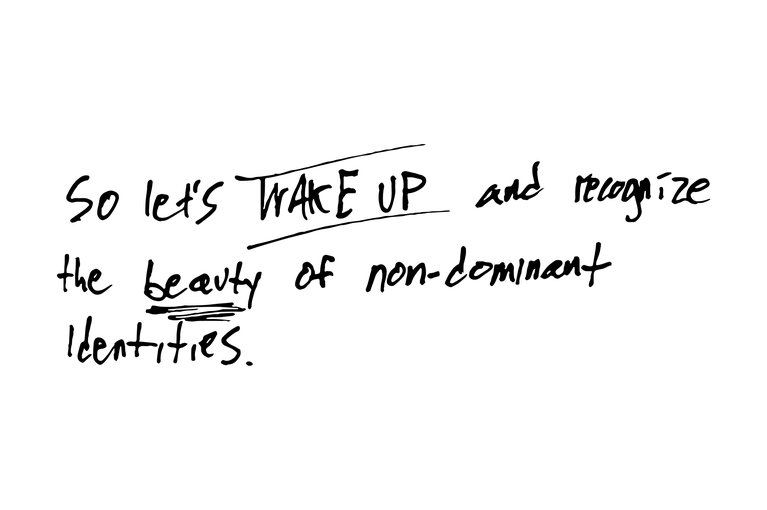 So let's WAKE UP and recognize
the beauty of non-dominant
identities.